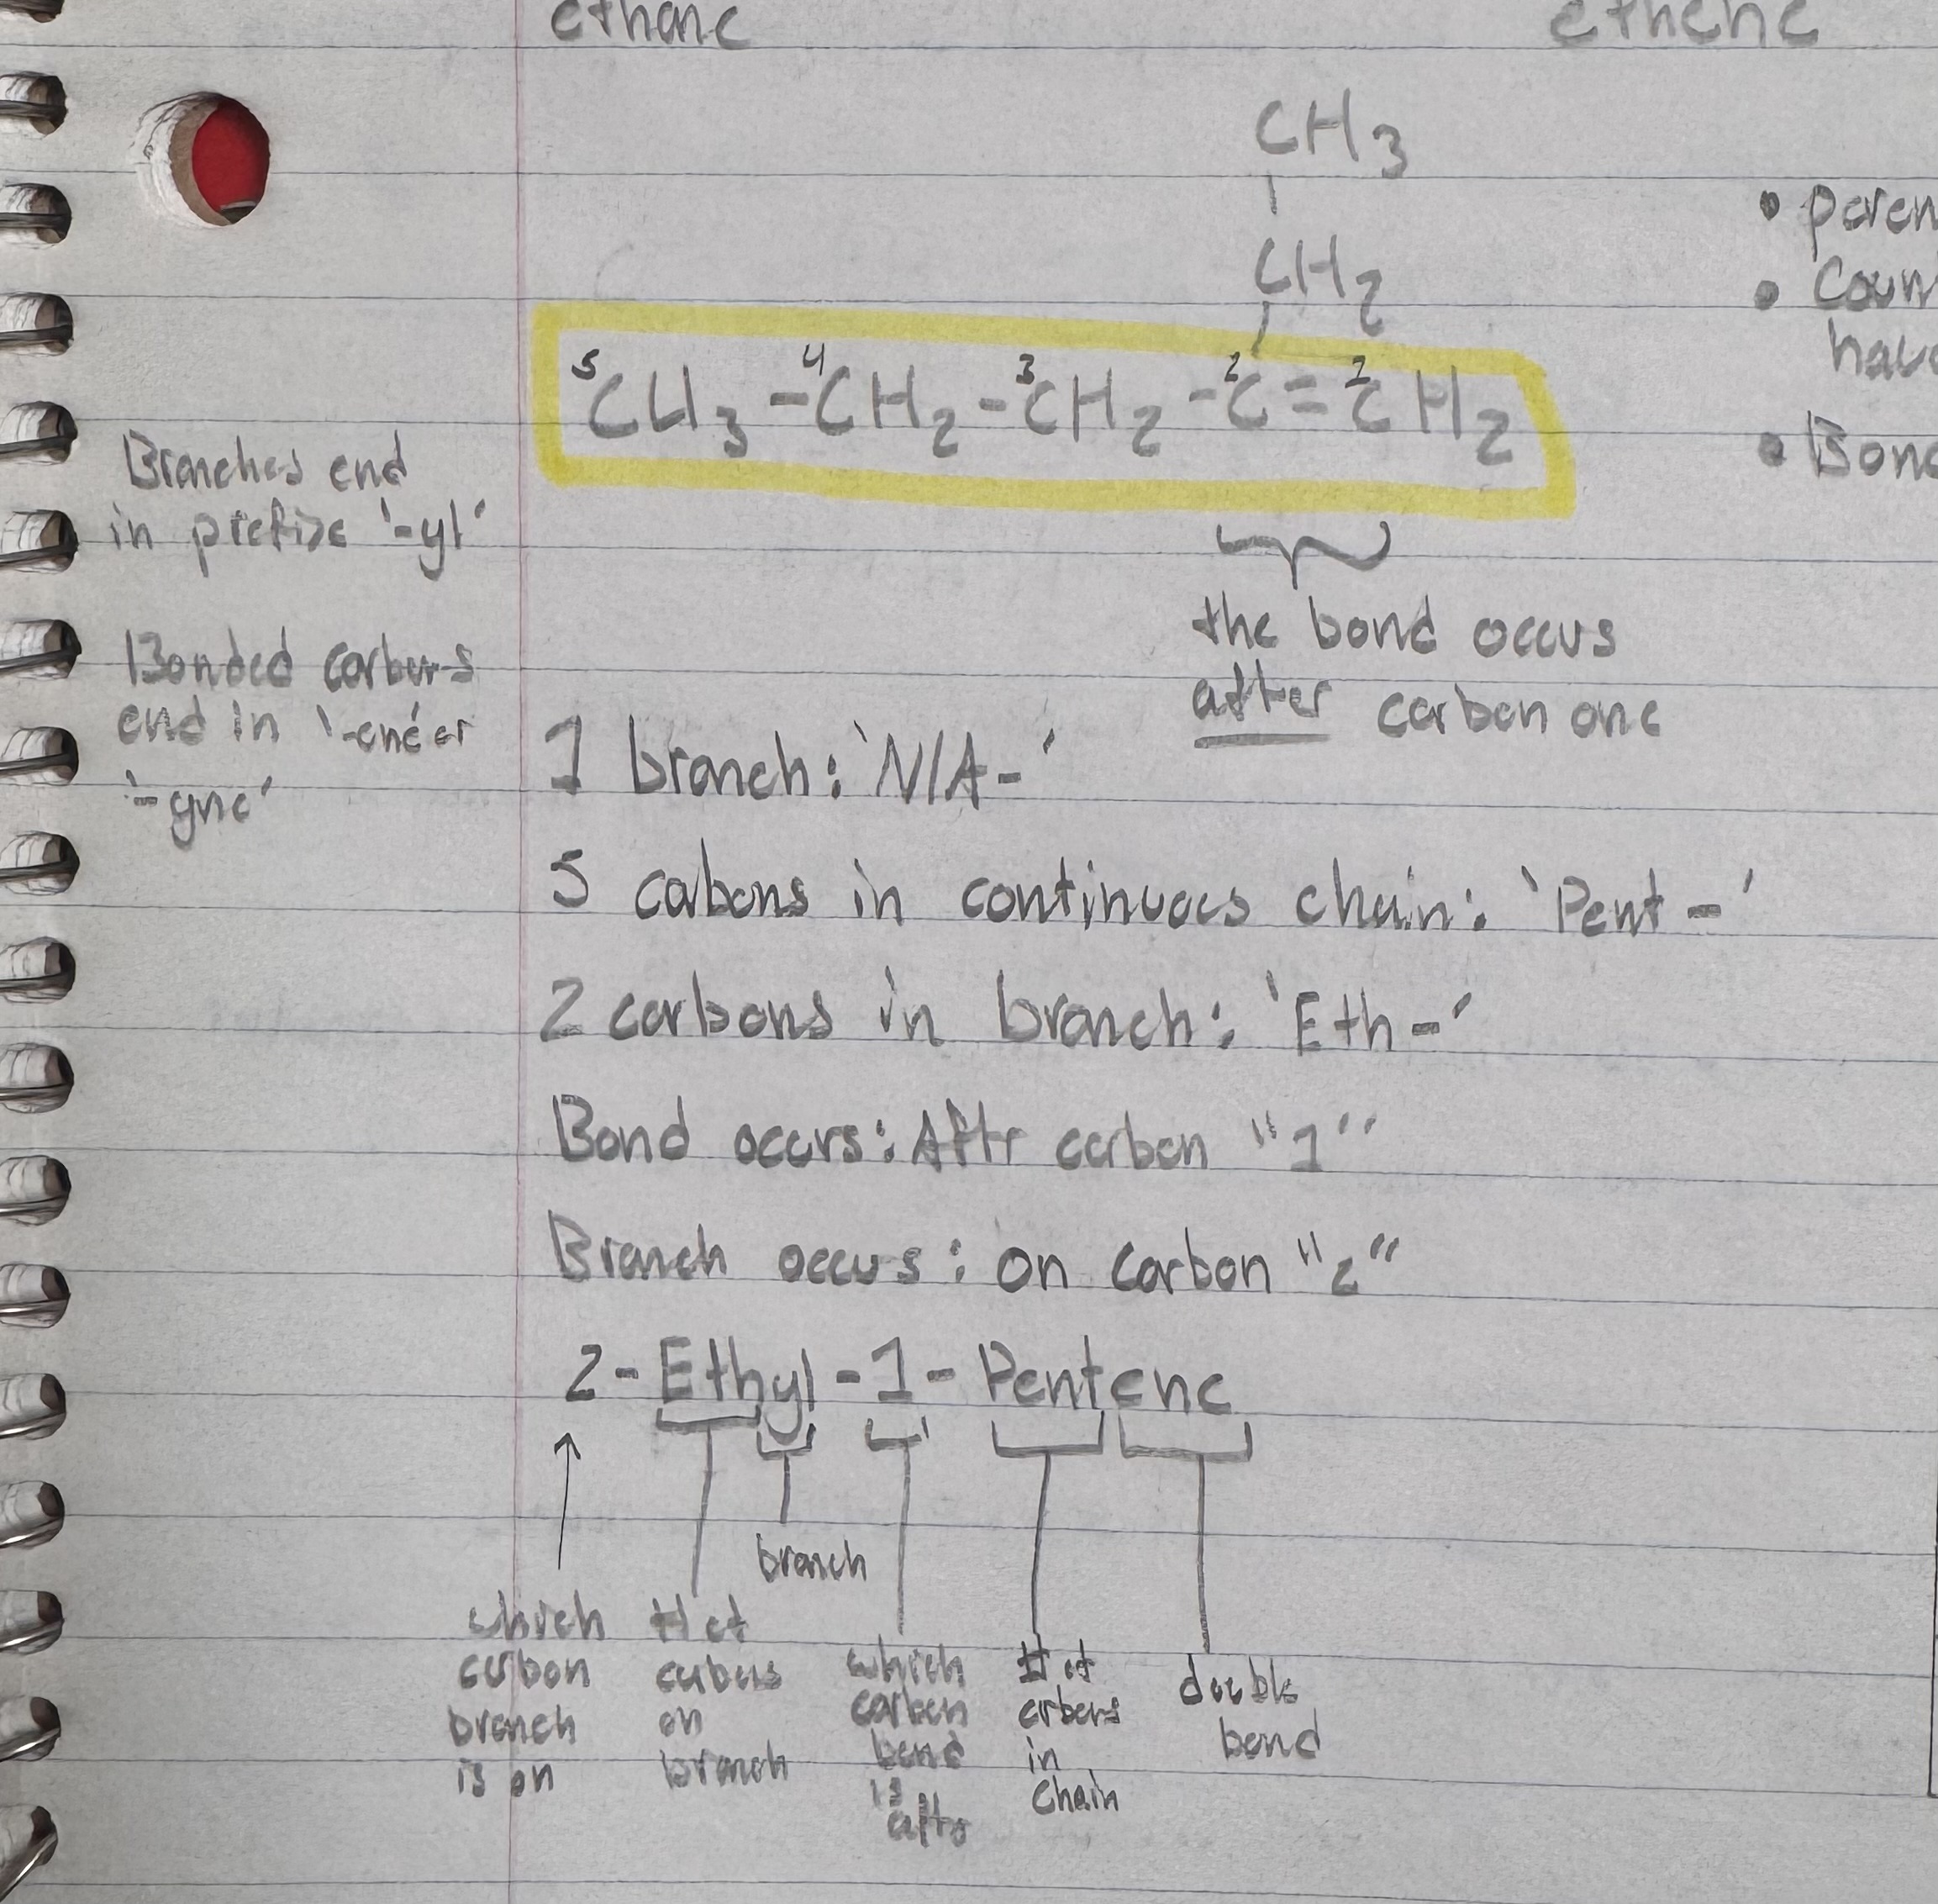 ethane
ethene
CH3
CH2
5CH3 - 4CH2 - 3CH2 - 2C = 1CH2
• paren
• Coun
hav
• Bond
Branches end
in prefixe '-yl'
Bonded carbons
end in '-ene' or
'-yne'
the bond occus
after carbon one
1 branch: 'N/A-'
5 cabons in continuous chain: 'Pent-'
2 carbons in branch: 'Eth-'
Bond occurs: Aftr carbon "1"
Branch occus: on carbon "2"
2-Ethyl-1-Pentene
branch
which
carbon
branch
is on
# of
cabons
on
branch
which
carbon
bond
is
after
# of
crbons
in
chain
double
bond